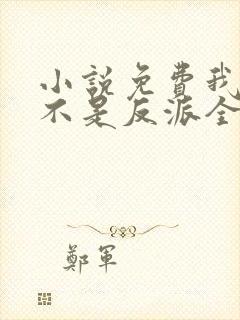 小説免費我
不是反派全
鄭軍